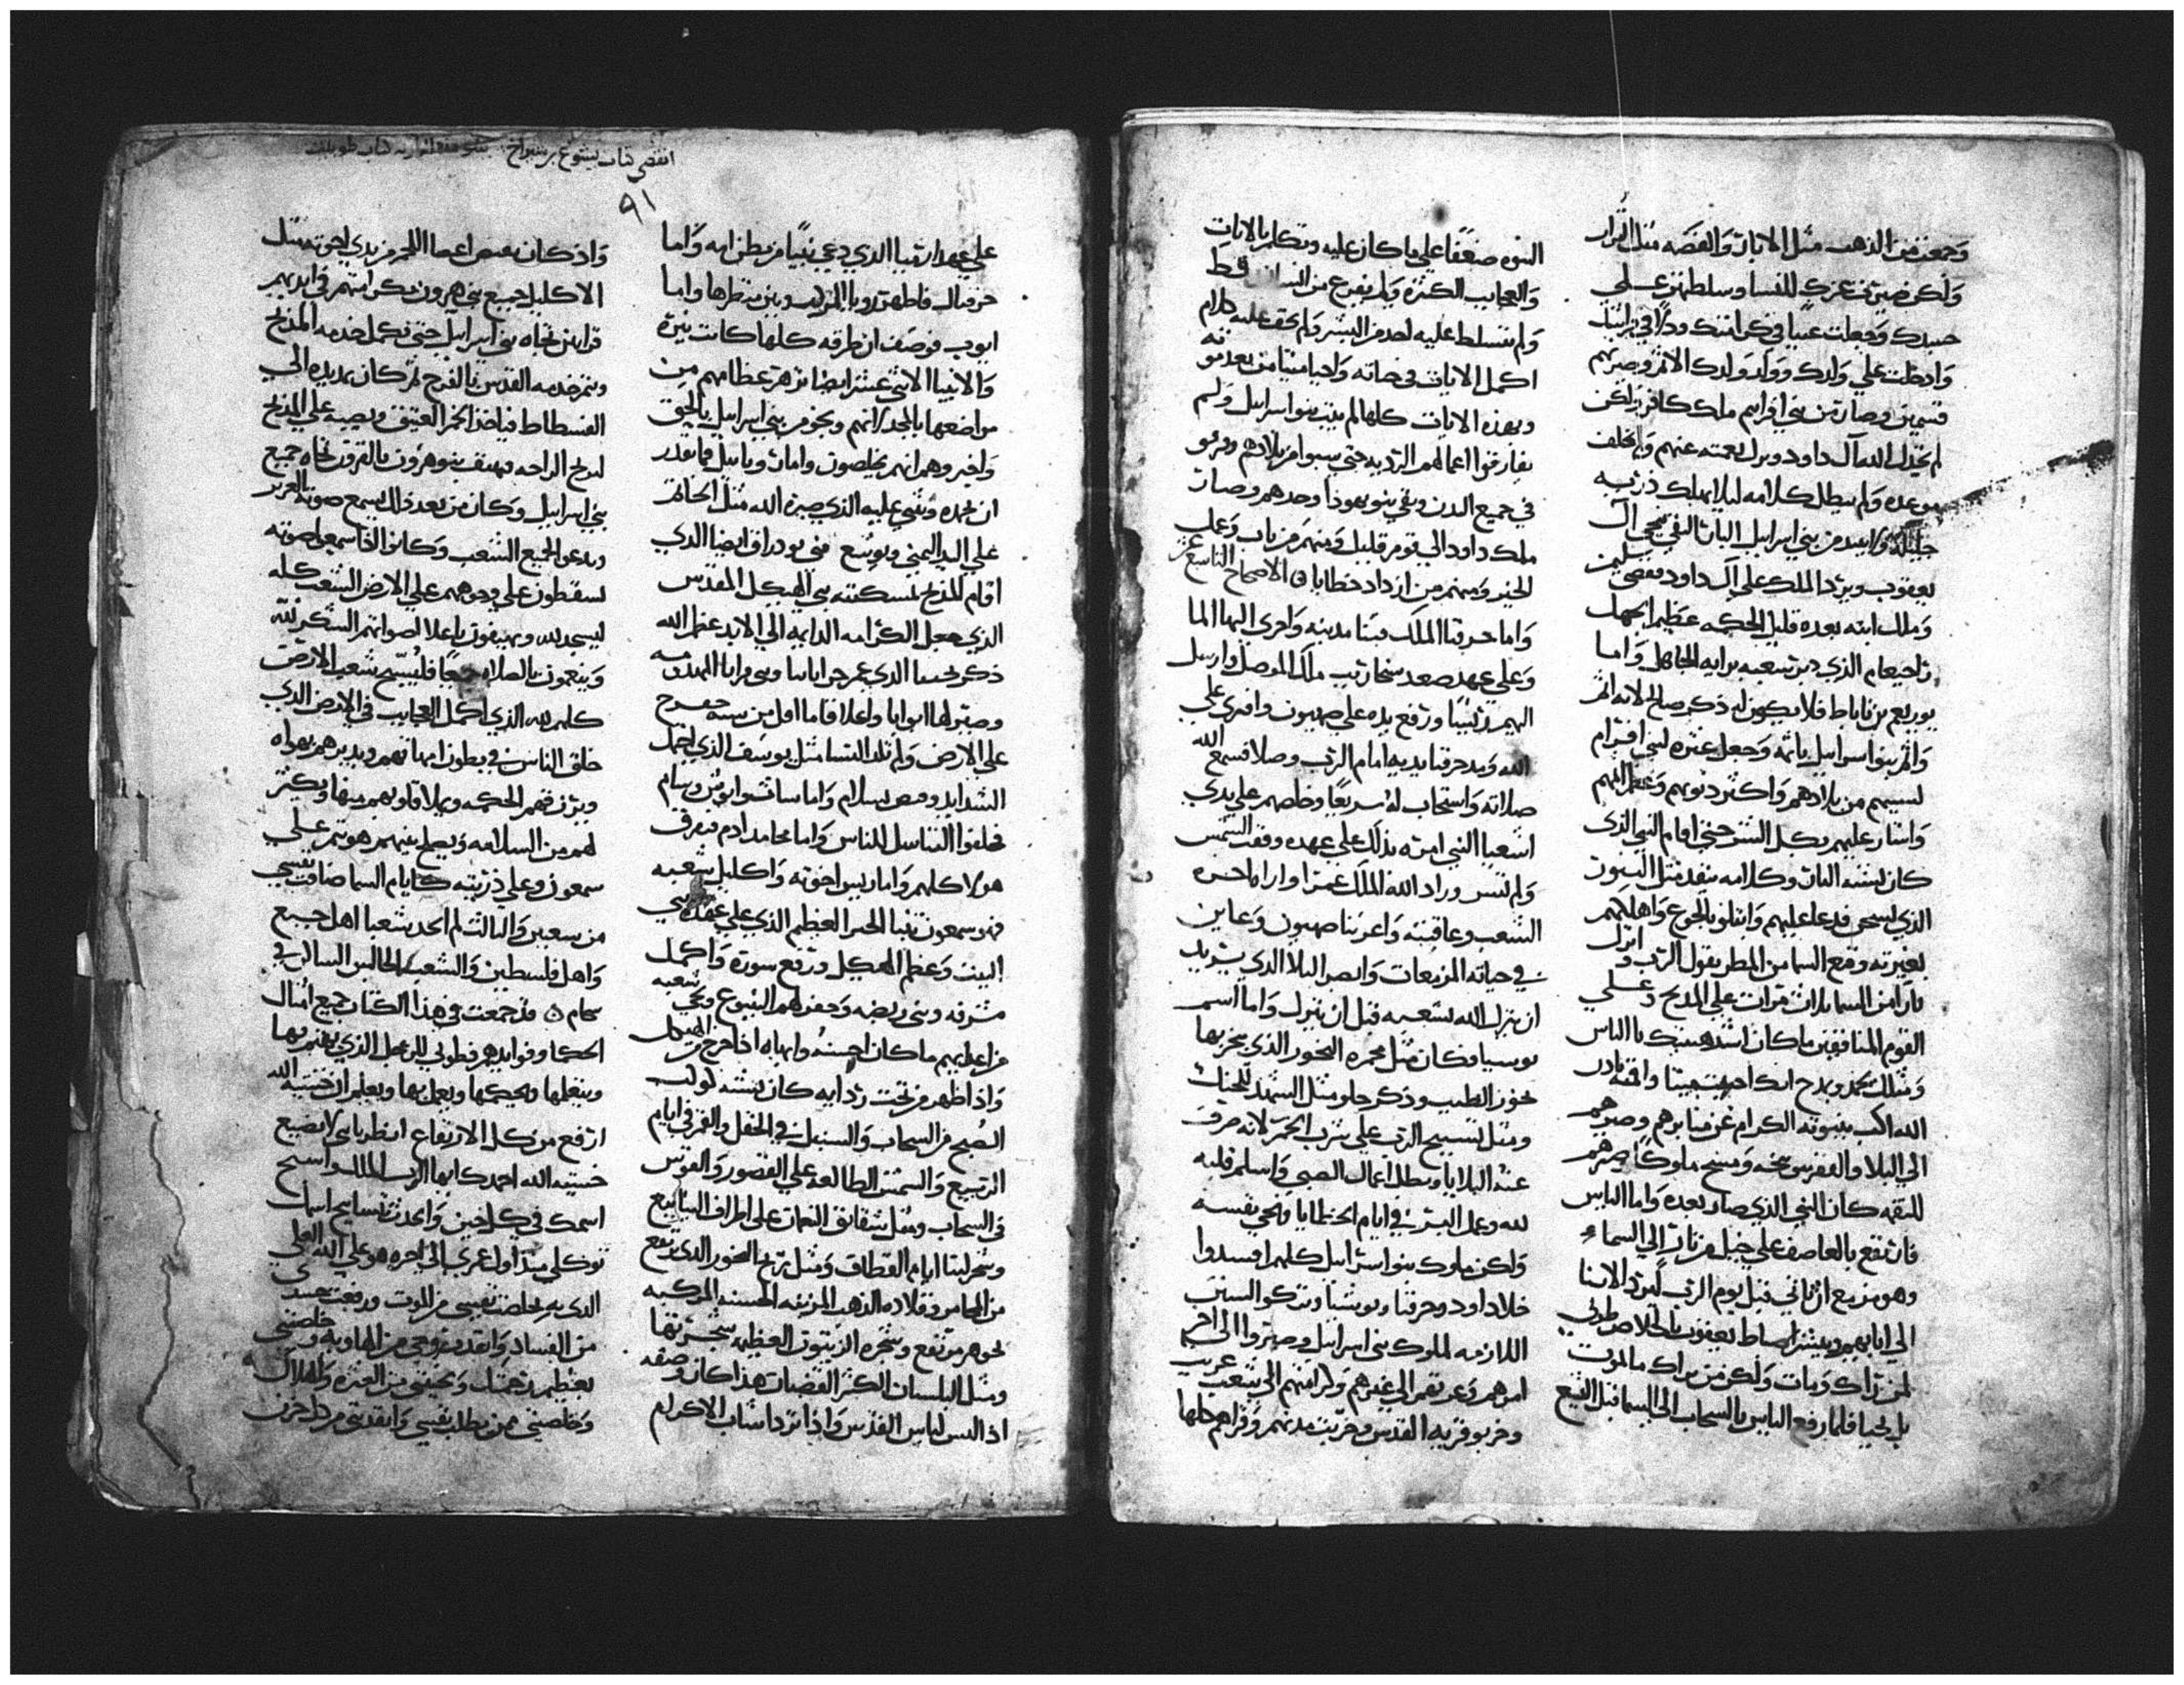 وجمعت من الذهب مثل الانبار والفضه مثل التراب
ولكن صيرت عزك للنسا وسلطتهن علي
جسدك وجعلت عيبا في كرامتك وذلا في تربتك
وادخلت علي ولدك وولد ولدك الاثم وصيرتهم
قسمين وصار من بني افرايم ملك كافر لكن
لم يخذل الله آل داود ونزل نعمته عنهم ولم يخلف
موعده ولم يبطل كلامه ليلا يهلك ذريه
من بني اسرائيل
يعقوب ويرد الملك علي آل داود فقضي سليمن
وملك ابنه بعده قليل الحكمه عظيم الجهل
رحبعام الذي دمر شعبه برايه الجاهل واما
يوربعم بن ناباط فلا يكون له ذكر صالح لانه اثم
واثم بنو اسراييل باثمه وجعل عثره لبني افرام
لسبيهم من بلادهم واكثر ذنوبهم وعظم اثمهم
واشار عليهم بكل الشر حتي اقام النبي الذي
كان يشبه النار وكلامه يتقد مثل التنور
الذي يسجر فدعا عليهم وابتلو بالجوع واهلكهم
بغيرته ومنع السما من المطر بقول الرب وانزل
نارا من السما ثلاث مرات علي المذبح وعلي
القوم المنافقين ما كان اشد هيبتك يا الياس
ومثلك يحمد ويمدح انك احييت ميتا واقمته باذن
الله اكب بنبوته الكرام عن منابرهم وصيرهم
الي البلا ومسح ملوكا صيرهم
للنقمه كان النبي الذي صار بعده واما الياس
فارتفع بالعاصف علي خيل من نار الي السماء
وهو مزمع ان ياتي قبل يوم الرب ليرد الابنا
الي ابايهم ويبشر اسباط يعقوب بالخلاص طوبي
لمن راك ومات ولكن من يراك ما يموت
بل يحيا فلما رفع الياس بالسحاب الي السما قبل اليسع
النبوه ضعفا علي ما كان عليه وتكلم بالايات
والعجايب الكثره ولم يفزع من انسان قط
ولم يتسلط عليه احد من البشر ولم يخف عليه كلام
اكمل الايات في حياته واحيا ميتا من بعد موته
وبهذه الايات كلها لم يتب بنو اسراييل ولم
يفارقوا اعمالهم الرديه حتي سبوا من بلادهم وفرقو
في جميع المدن وبقي بنو يهوذا وحدهم وصار
ملك داود الي قوم قليل ومنهم من تاب وعمل
الخير ومنهم من ازداد خطايا ۞ الاصحاح التاسع عشر
واما حزقيا الملك فبنا مدينه واجري اليها الما
وعلي عهده صعد سنحاريب ملك الموصل وارسل
اليهم ربشقا ورفع يده علي صهيون وافتري علي
الله ومد حزقيا يديه امام الرب وصلا فسمع الله
صلاته واستجاب له سريعا وخلصهم علي يدي
اشعيا النبي امره بذلك علي عهده وقفت الشمس
ولم تسير وزاد الله الملك عمرا واراه اخره
الشعب وعاقبته واعز بنا صهيون وعاين
في حياته المزمعات وابصر البلا الذي يريد
ان ينزل الله بشعبه قبل ان ينزل واما اسم
يوسيا فكان مثل مجمره البخور الذي يبخر بها
بخور الطيب وذكره حلو مثل الشهد للحنك
ومثل تسبيح الرب علي شرب الخمر لانه صرف
عنه البلايا وبطل اعمال الصبي واسلم قلبه
لله وعمل البر في ايام الخطايا ونجي نفسه
ولكن ملوك بنو اسراييل كلهم افسدوا
خلا داود وحزقيا ويوشيا وتركوا السنن
اللازمه لملوك بني اسراييل وصيروا الي اخر
امرهم وعزتهم الي غيرهم وكرامتهم الي شعب غريب
وخربو قريه القدس وخربت مدنهم وقراهم كلها
انقضي كتاب يشوع بن سيراخ
٩١
علي عهد ارميا الذي دعي نبيا من بطن امه واما
حزقيال فاظهر رويا المركب وبين منظرها واما
ايوب فوصف ان طرقه كلها كانت نيره
والانبيا الاثني عشر ايضا تزهر عظامهم من
مواضعها بالمجد لانهم وبخو من بني اسراييل بالحق
واخبروهم انهم يخلصون واما زوربابيل فما نقدر
ان نحمده ونثني عليه الذي صيره الله مثل الخاتم
علي اليد اليمني ويوشع بني يوزداق ايضا الذي
اقام المذبح بمسكنته بني الهيكل المقدس
الذي جعل الكرامه الدايمه الي الابد عظم الله
ذكر نحميا الذي عمر خراباتنا وبني قرايانا المهدومه
وصير لها ابوابا واغلاقا ما اقل من يشبه خنوخ
علي الارض ولم تلد النسا مثل يوسف الذي احتمل
الشدايد وقبض بسلام واما سام وشيث وانوش وسام
فخلقوا التناسل للناس واما محامد ادم فتفوق
هولا كلهم واما رييس اخوته واكليل شعبه
فهو سمعون بن نتنيا الحبر العظيم الذي علي عهده بني
البيت وعظم الهيكل ورفع سوره واكمل
مشرفه وبني ربضه وحفر لهم الينبوع ونجي شعبه
من اعدايهم ما كان احسنه وابهاه اذا خرج من الهيكل
واذا ظهر من تحت رداءيه كان يشبه كوكب
الصبح من السحاب والسنبل في الحقل والقمر في ايام
الربيع والشمس الطالعه علي القصور والقوس
في السحاب ومثل شقائق النعمان علي اطراف الينابيع
وشجر لبنا ايام القطاف ومثل ريح البخور الذي يرتفع
من المجامر وقلاده الذهب المزينه الحسنه المركبه
بجوهر مرتفع وشجره الزيتون العظيمه شجرتها
ومثل البلسان الكثير القضبان هذا كان وصفه
اذا لبس لباس القدس واذا تردا ثياب الاكرام
واذ كان يقبض اعضا اللحم من يدي اخوته مثل
الاكليل جميع بني هرون بكرامتهم في ايديهم
قرابين تجاه بني اسراييل حتي تكمل خدمه المذبح
وتتم خدمه القدس بالفرح ثم كان يمد يده الي
الفسطاط فياخذ الخمر العتيق ويصبه علي المذبح
لريح الراحه فيهتف بنو هرون بالقرون تجاه جميع
بني اسراييل وكان من بعد ذلك يسمع صوته العزيز
ويدعو الجميع الشعب وكانوا اذا سمعوا صوته
يسقطون علي وجوههم علي الارض الشعب كله
ليسجد لله ويهتفون باعلا اصواتهم الشكر لله
وينعمون بالصلاه جميعا فليسبح شعب الارض
كلهم لله الذي اكمل العجايب في الارض الذي
خلق الناس في بطون امهاتهم ويدبرهم بهواه
ويرزقهم الحكمه ويملا قلوبهم منها ويكثر
لهم من السلامه ويصلح بينهم هو يتم علي
سمعون وعلي ذريته كايام السما ضاقت نفسي
من شعبين والثالث لم اعده شعبا اهل جبيع
واهل فلسطين والشعب الجالس الساكن في
سحام ۞ قد جمعت في هذا الكتاب جميع امثال
الحكما وفوايدهم فطوبي للرجل الذي يهتم بها
ويتعلمها ويحكمها ويعمل بها ويعلم ان خشيه الله
ارفع من كل الارتفاع انظر يا بني لا تضيع
خشيه الله احمدك ايها الرب الملك واسبح
اسمك في كل حين واحدث تسابيح اسمك
توكلي منذ اول عمري الي اخره هو علي الله العلي
الذي به خلصت نفسي من الموت ورفعت جسدي
من الفساد وانقدت روحي من الهاويه وخلصتني
بعظيم رحمتك ونجيتني من العثره والهلاك
وخلصتني ممن يطلب نفسي وانقدتني من كل حزن